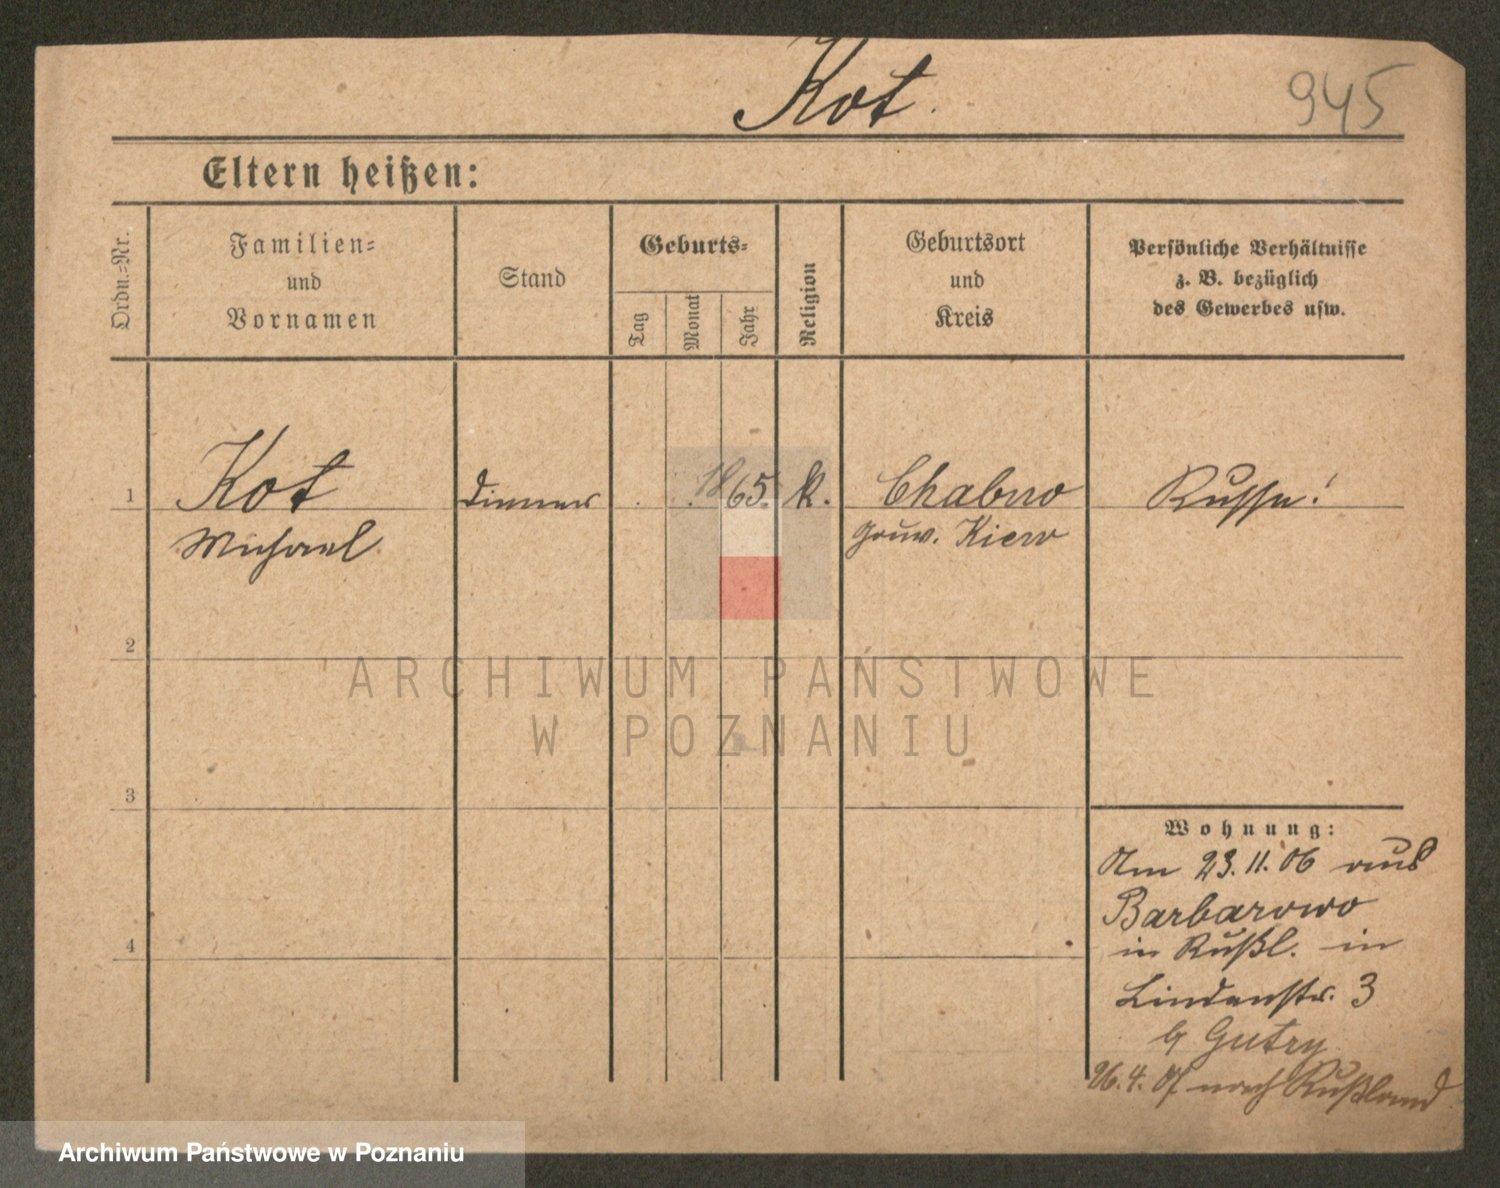 Kot.
945
Eltern heißen:
Ordn.=Nr.
Familien=
und
Vornamen
Stand
Geburts=
Tag
Monat
Jahr
Religion
Geburtsort
und
Kreis
Persönliche Verhältnisse
z. B. bezüglich
des Gewerbes usw.
1
Kot
Michael
Diener
1865.
k.
Chabno
Gouv. Kiew
Russe!
2
ARCHIWUM PAŃSTWOWE
W POZNANIU
3
Wohnung:
Am 23.11.06 aus
Barbarowo
in Rußl. in
Lindenstr. 3
b Gutry
26.4.07 nach Rußland
4
Archiwum Państwowe w Poznaniu